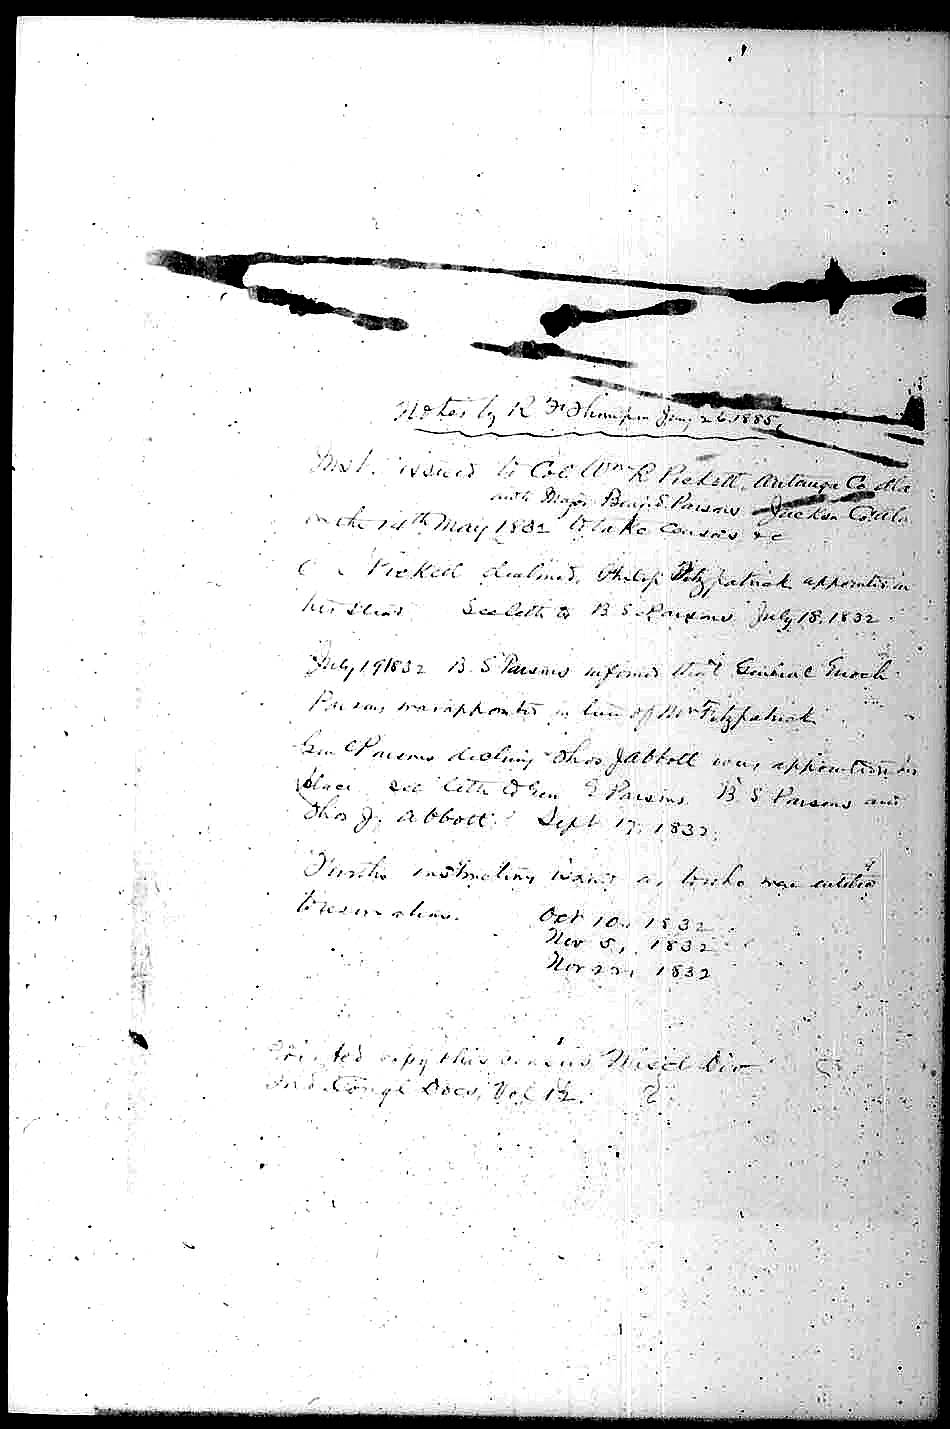 Notes by R F Thompson Jany 26 1885,
Inst. issued to Col Wm R Pickett, Autauga Co Ala
with Major Benj. S Parsons Jackson Co Ala
on the 14th May 1832 to take census &c
Pickett declined, Philip Fitzpatrick appointed in
his stead See lettr to B S Parsons July 18, 1832
July 19 1832 B. S Parsons informed that General Enoch
Parsons was appointed in lieu of Mr Fitzpatrick
Genl Parsons declining Thos J Abbott was appointed in
place see lettr to Gen E Parsons B S Parsons and
Thos J. Abbott. Sept 17, 1832.
Further instructions issued as to who was entitled
to reservations. Oct 10, 1832
Nov 5, 1832
Nov 22, 1832
Printed copy this census Miscl Div
Ind. Congl Docs, Vol 12.